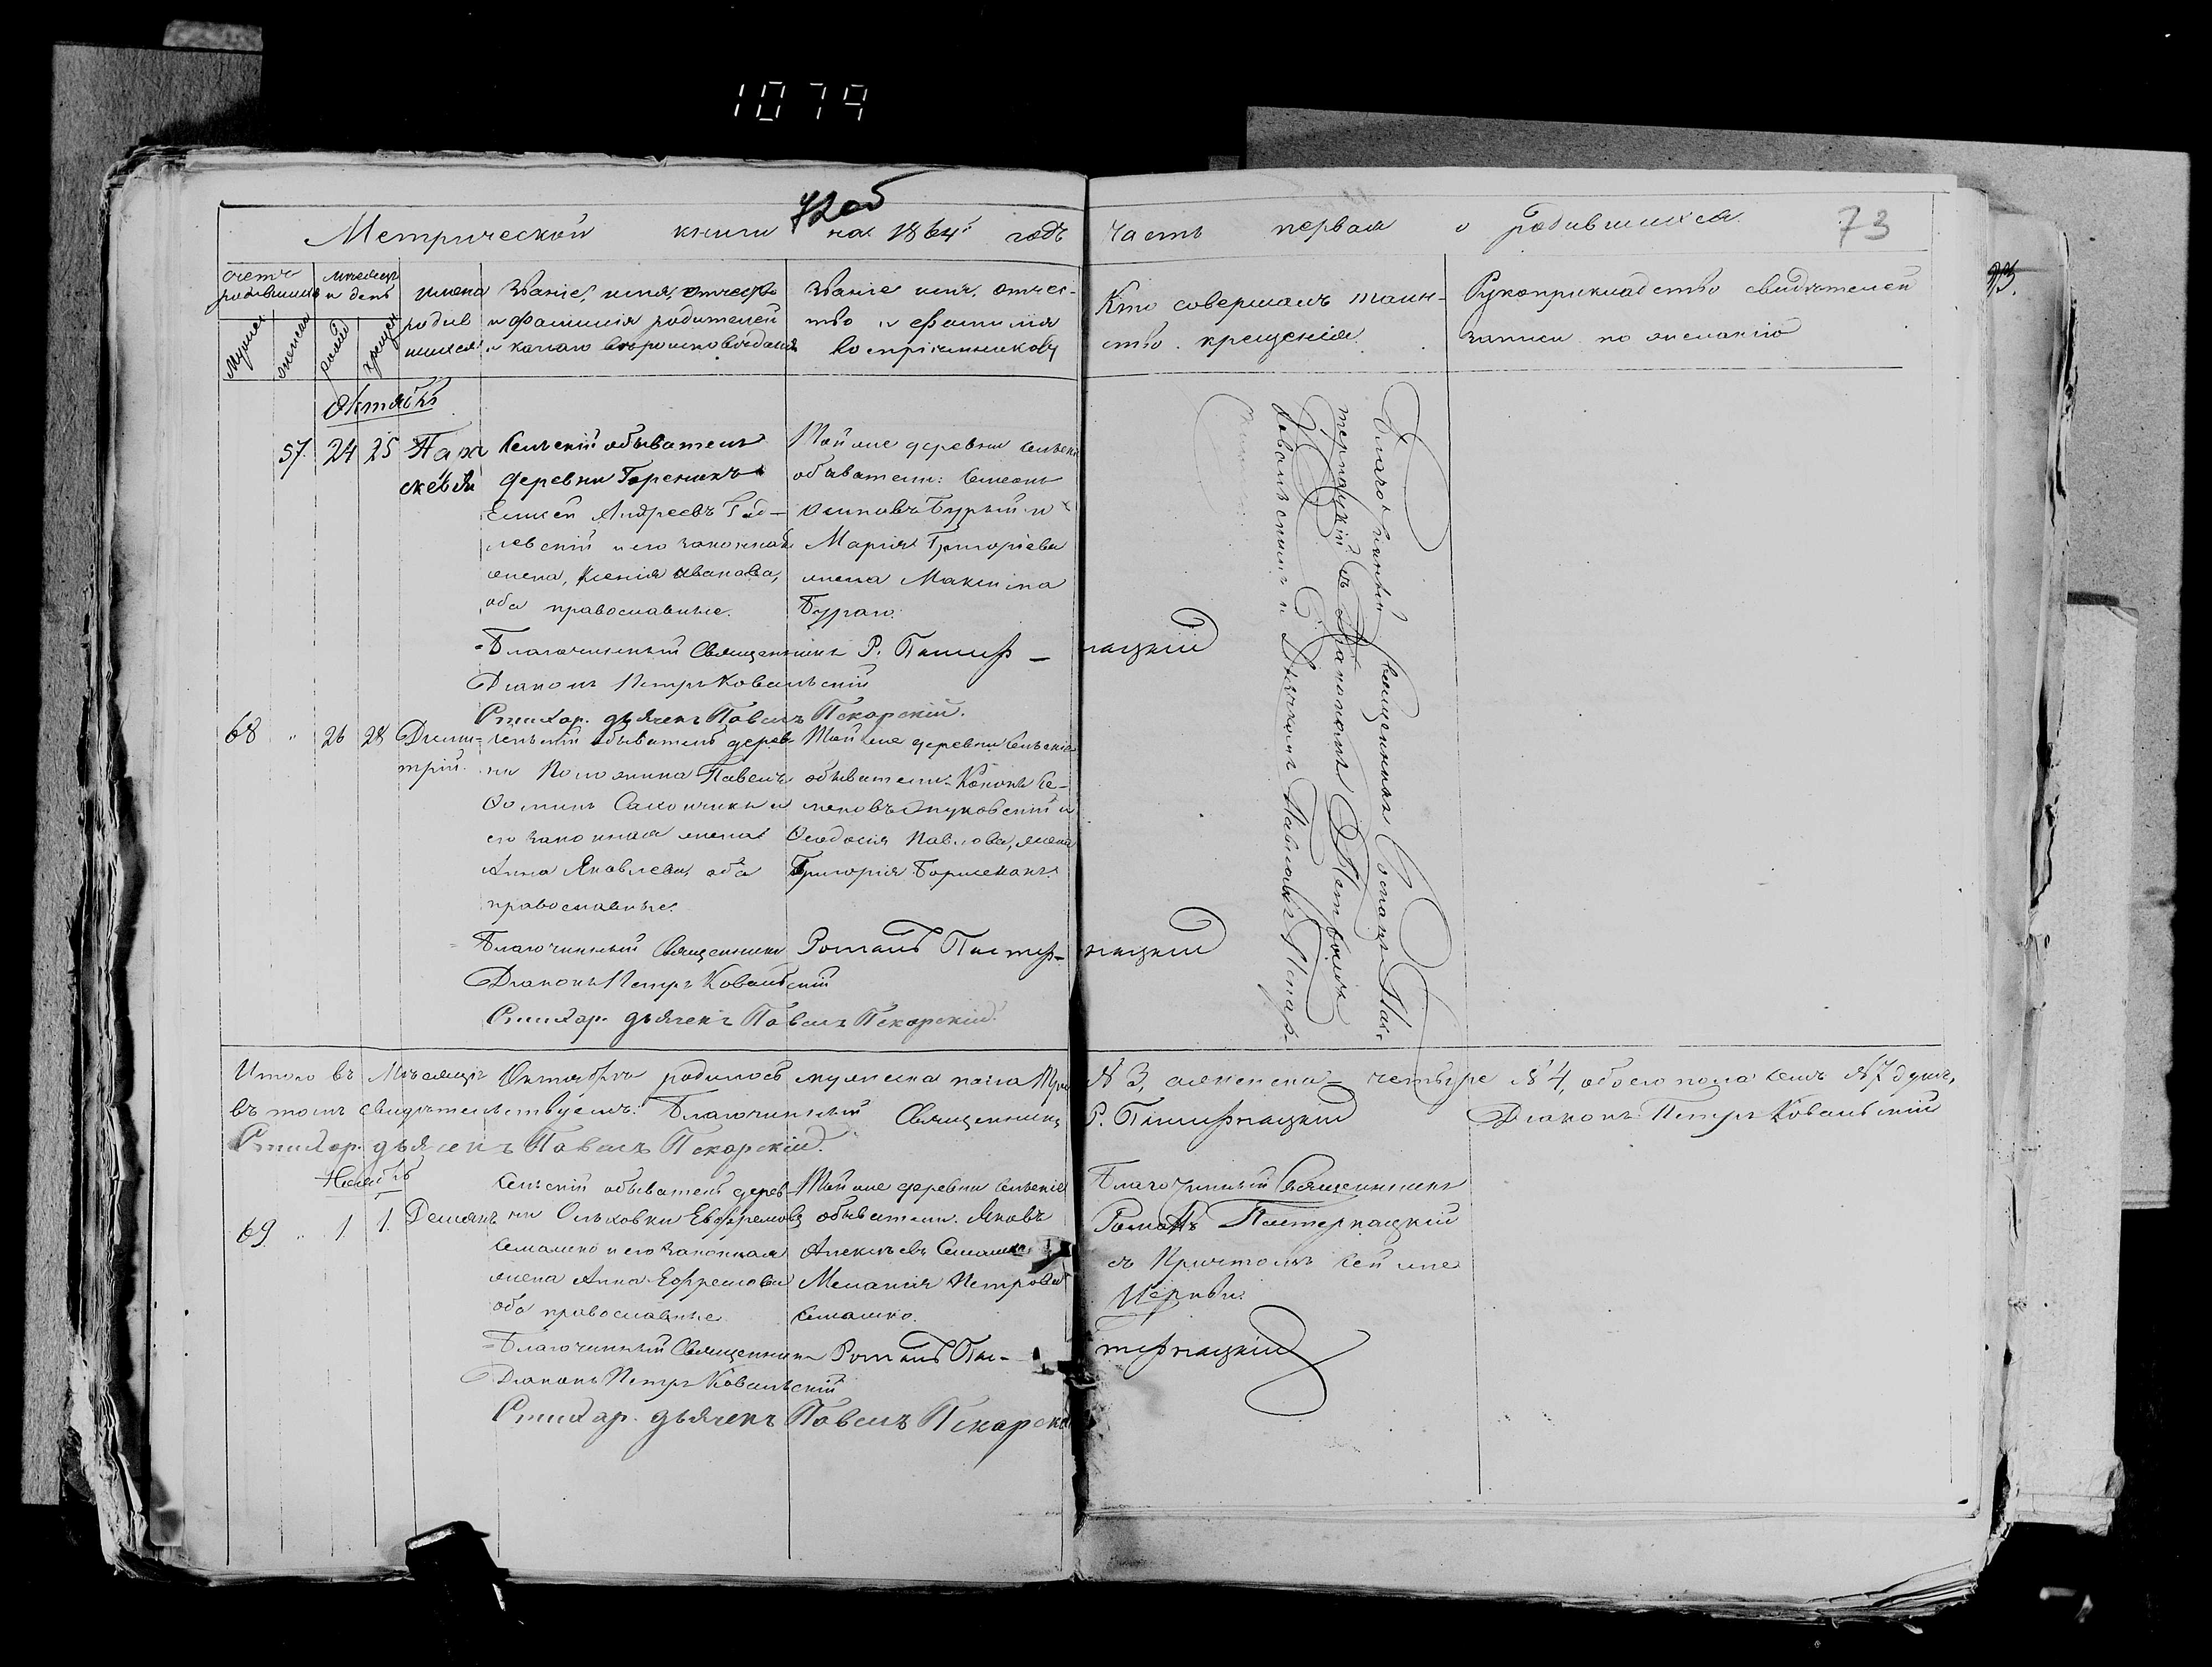 1079
72об
Метрической книги на 1864й годъ
часть первая о родившихся
73
счетъ родившихся
мѣсяцъ и день
мужеск
женска
рожд
крещен
имена родив шихся
Званіе, имя, отчество
и фамилія родителей
и какого вѣроисповѣданія
Званіе имя, отчес-
тво и фамилія
воспріемниковъ
Кто совершалъ таин-
ство крещенія
Рукоприкладство свидѣтелей
записи по желанію
Октябрь
57. 24 25 Пара
скевія
Сельскій обыватель
деревни Гореникъ
Елисей Андреевъ
и его законная
жена, Ксенія Иванова,
оба православные.
Той же деревни сельскіе
обыватели: Симеонъ
Осиповъ Бурый и
Марія Григоріева
жена Максима
Бураго.
Благочинный Священникъ Р. Пастер-нацкій
Діаконъ Петръ Ковальскій
Стихар. дьячекъ Павелъ Пекарскій.
68 " 26 28 Дими-
трій.
Сельскій обыватель дерев-
ни Положина Павелъ
Ѳоминъ и
его законная жена
Анна Яковлева оба
православные.
Той же деревни сельскіе
обыватели: Кононъ Се-
меновъ и
Ѳеодосія Павлова, жена
Григорія
Благочинный Священникъ Романъ Пастер-нацкій
Діаконъ Петръ Ковальскій
Стихар. дьячекъ Павелъ Пекарскій.
Благочинный Священникъ Романъ Пас-
тернацкій съ Діакономъ Петромъ
Ковальскимъ и Дьячкомъ Павломъ Пекар-
скимъ
Итого въ Мѣсяцѣ Октябрѣ родилось мужеска пола три № 3, а женска - четыре № 4, обоего пола семь № 7 душъ,
въ томъ свидѣтельствуемъ: Благочинный Священникъ Р. Пастернацкій Діаконъ Петръ Ковальскій
Стихар. дьячекъ Павелъ Пекарскій.
Ноябрь
69. " 1 1. Демьянъ
Сельскій обыватель дерев-
ни Ольховки Ефремовъ
Семашко и его законная
жена Анна Ефремова
оба православные.
Той же деревни сельскіе
обыватели. Яковъ
Алексѣевъ Семашко и
Меланія Петрова
Семашко.
Благочинный Священникъ
Романъ Пастернацкій
съ Причтомъ сей же
Церкви.
Благочинный Священникъ Романъ Пас-тернацкій
Діаконъ Петръ Ковальскій
Стихар. дьячекъ Павелъ Пекарскій